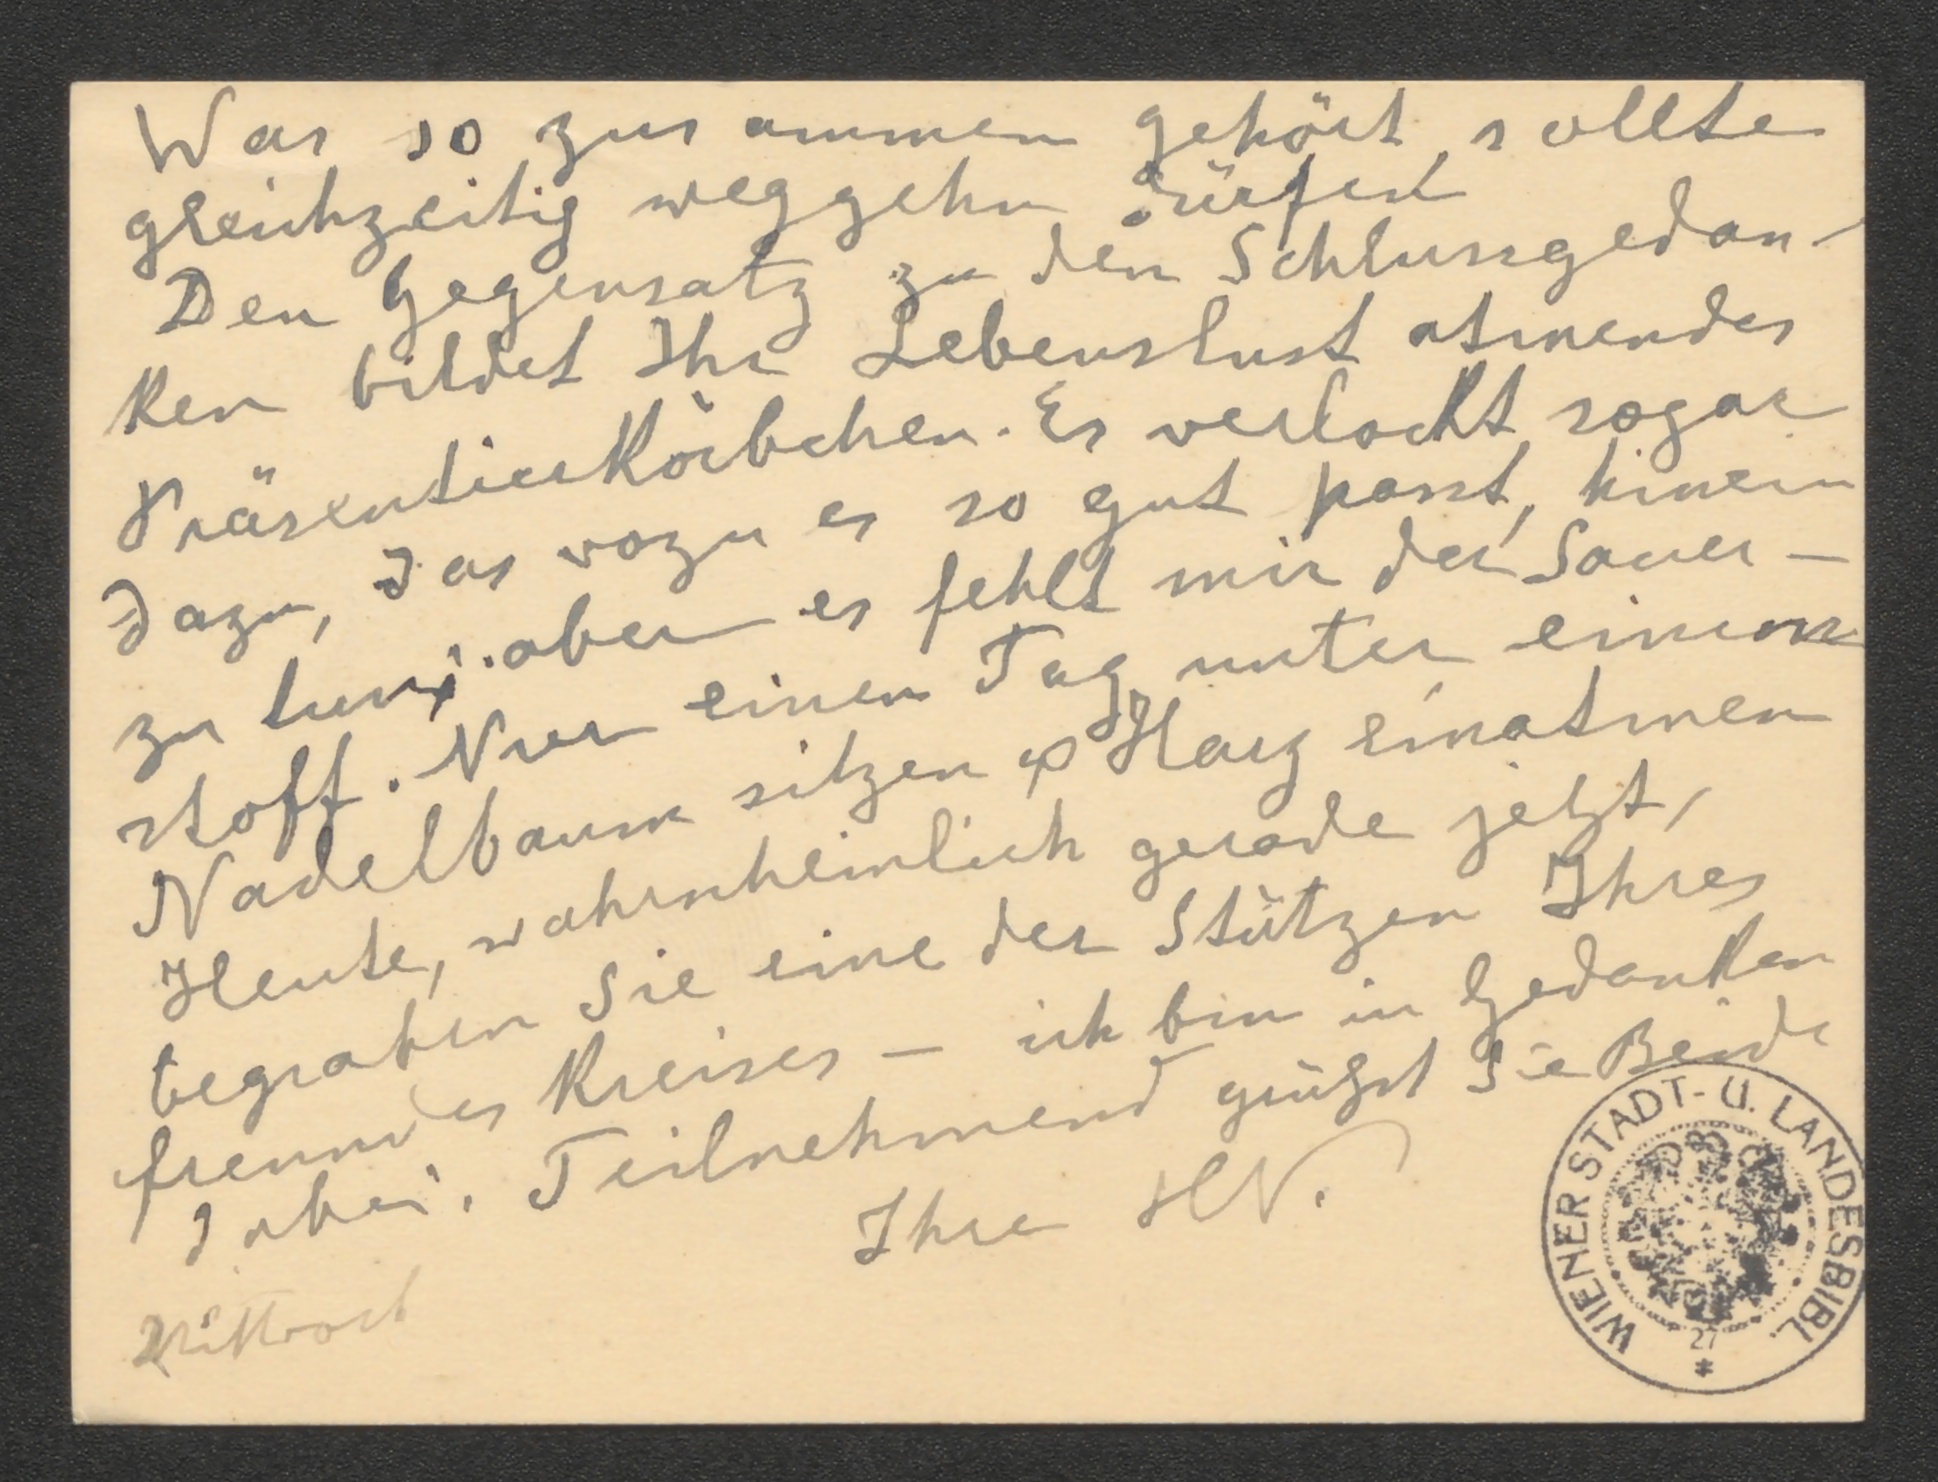 Was so zusammen gehört, sollte
gleichzeitig weggehn dürfen
Den Gegensatz zu den Schlussgedan-
ken bildet Ihr Lebenslust atmendes
Präsentierkörbchen. Es verlockt sogar
dazu, das wozu es so gut passt, hinein
zu tun; aber es fehlt mir der Sauer-
stoff. Nur einen Tag unter einem
Nadelbaum sitzen & Harz einatmen
Heute, wahrscheinlich gerade jetzt,
begraben Sie eine der Stützen Ihres
freundes Kreises – ich bin in Gedanken
dabei. Teilnehmend grüßt Sie Beide
Ihre HN.
Mittwoch
WIENER STADT- U. LANDESBIBL.
27
*